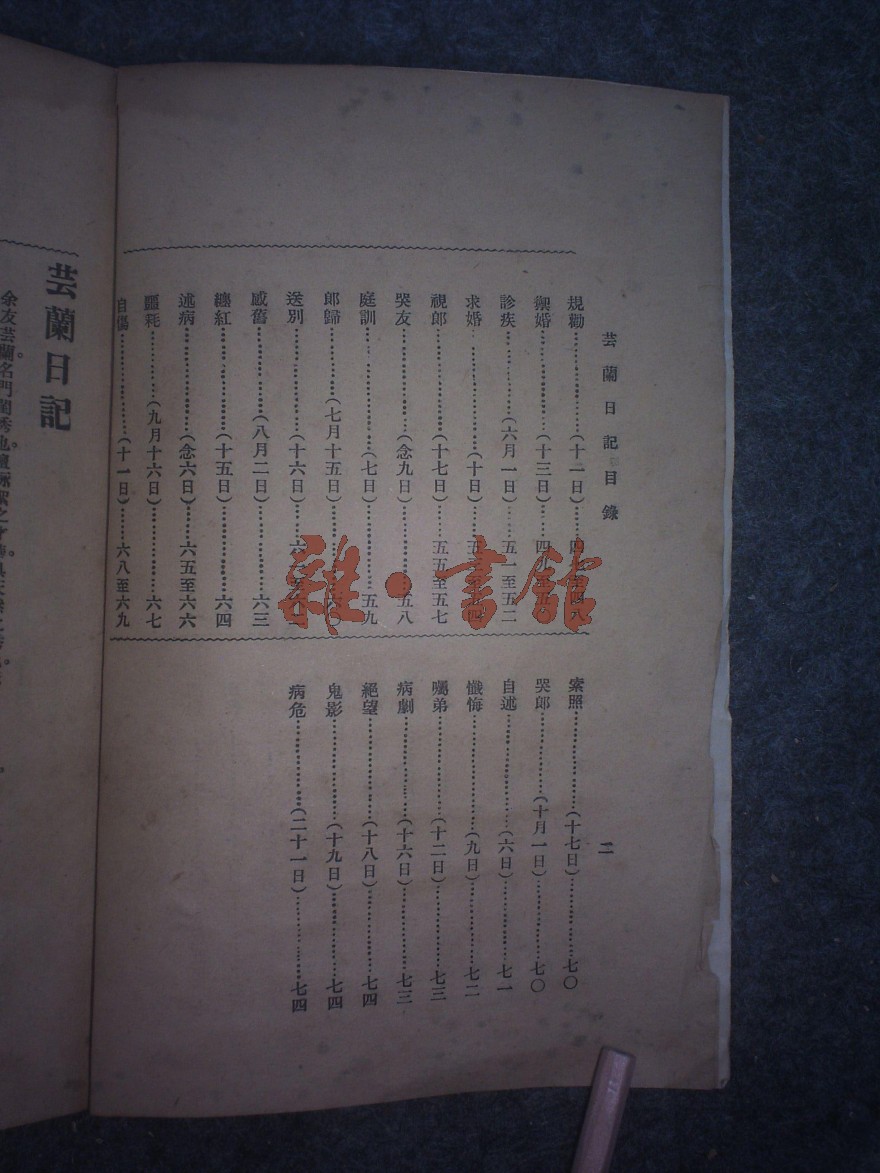 芸蘭日記目錄
二
規勸…………(十一日)……四七至四八
禦婚…………(十三日)……四九至五〇
診疾…………(六月一日)……五一至五二
求婚…………(十日)……五三至五四
視郎…………(十七日)……五五至五七
哭友…………(念九日)……五八
庭訓…………(七日)…………五九
郎歸…………(七月十五日)……六〇
送別…………(十六日)……
感舊…………(八月二日)……六三
纏紅…………(十五日)……六四
述病…………(念六日)……六五至六六
噩耗…………(九月十六日)……六七
自傷…………(十一日)……六八至六九
索照…………(十七日)…………七〇
哭郎…………(十月一日)……七〇
自述…………(六日)…………七一
懺悔…………(九日)…………七二
囑弟…………(十二日)…………七三
病劇…………(十六日)…………七三
絕望…………(十八日)…………七四
鬼影…………(十九日)…………七四
病危…………(二十一日)…………七四
芸蘭日記
余友芸蘭名門閨秀也
雜·書舘